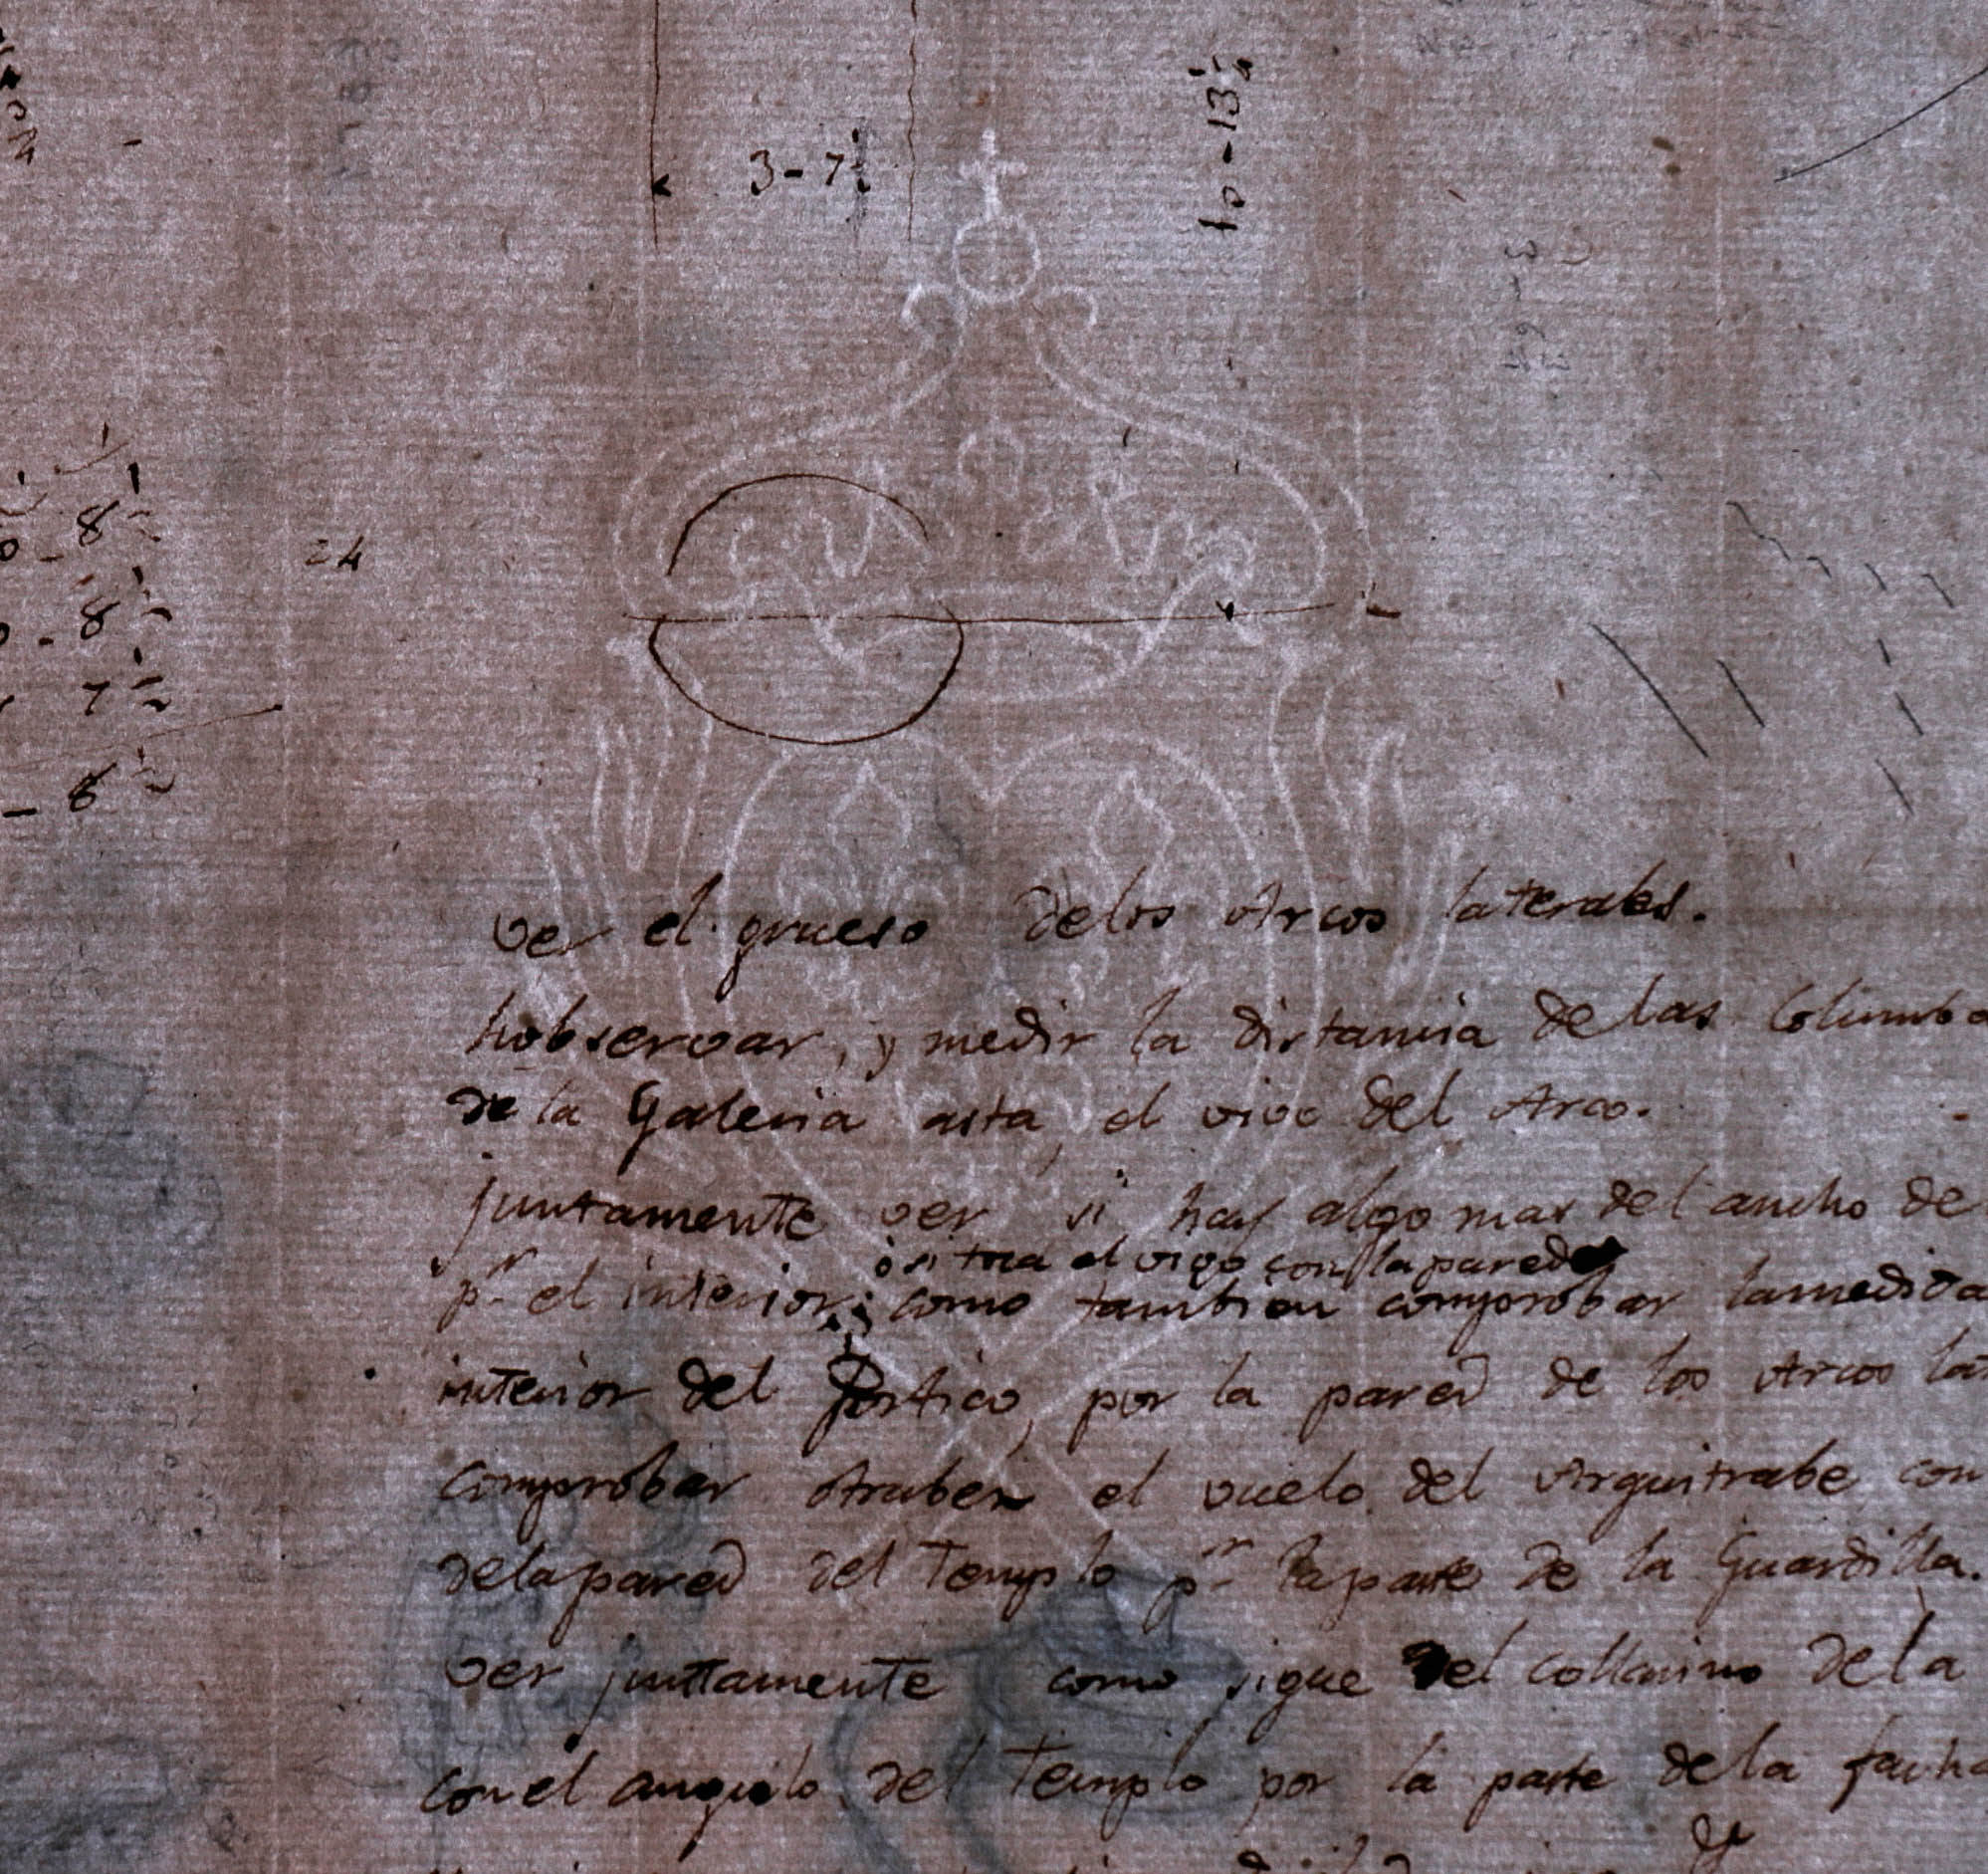 3-7½
10-13½
8½
24
8½
7½
- 6½
ver el grueso de los Arcos laterales.
hobservar, y medir la distancia de las Columb
de la Galeria asta, el vivo del Arco.
juntamente ver si hay algo mas del ancho de
ò si toca el vivo con la pared
pr. el interior; como tambien comprobar la medida
interior del Portico, por la pared de los Arcos lat
comprobar el vuelo del Arquitrabe con
de la pared del Templo pr. la parte de la Guardilla.
ver juntamente como sigue el collarino de la
con el angulo del Templo por la parte de la facha